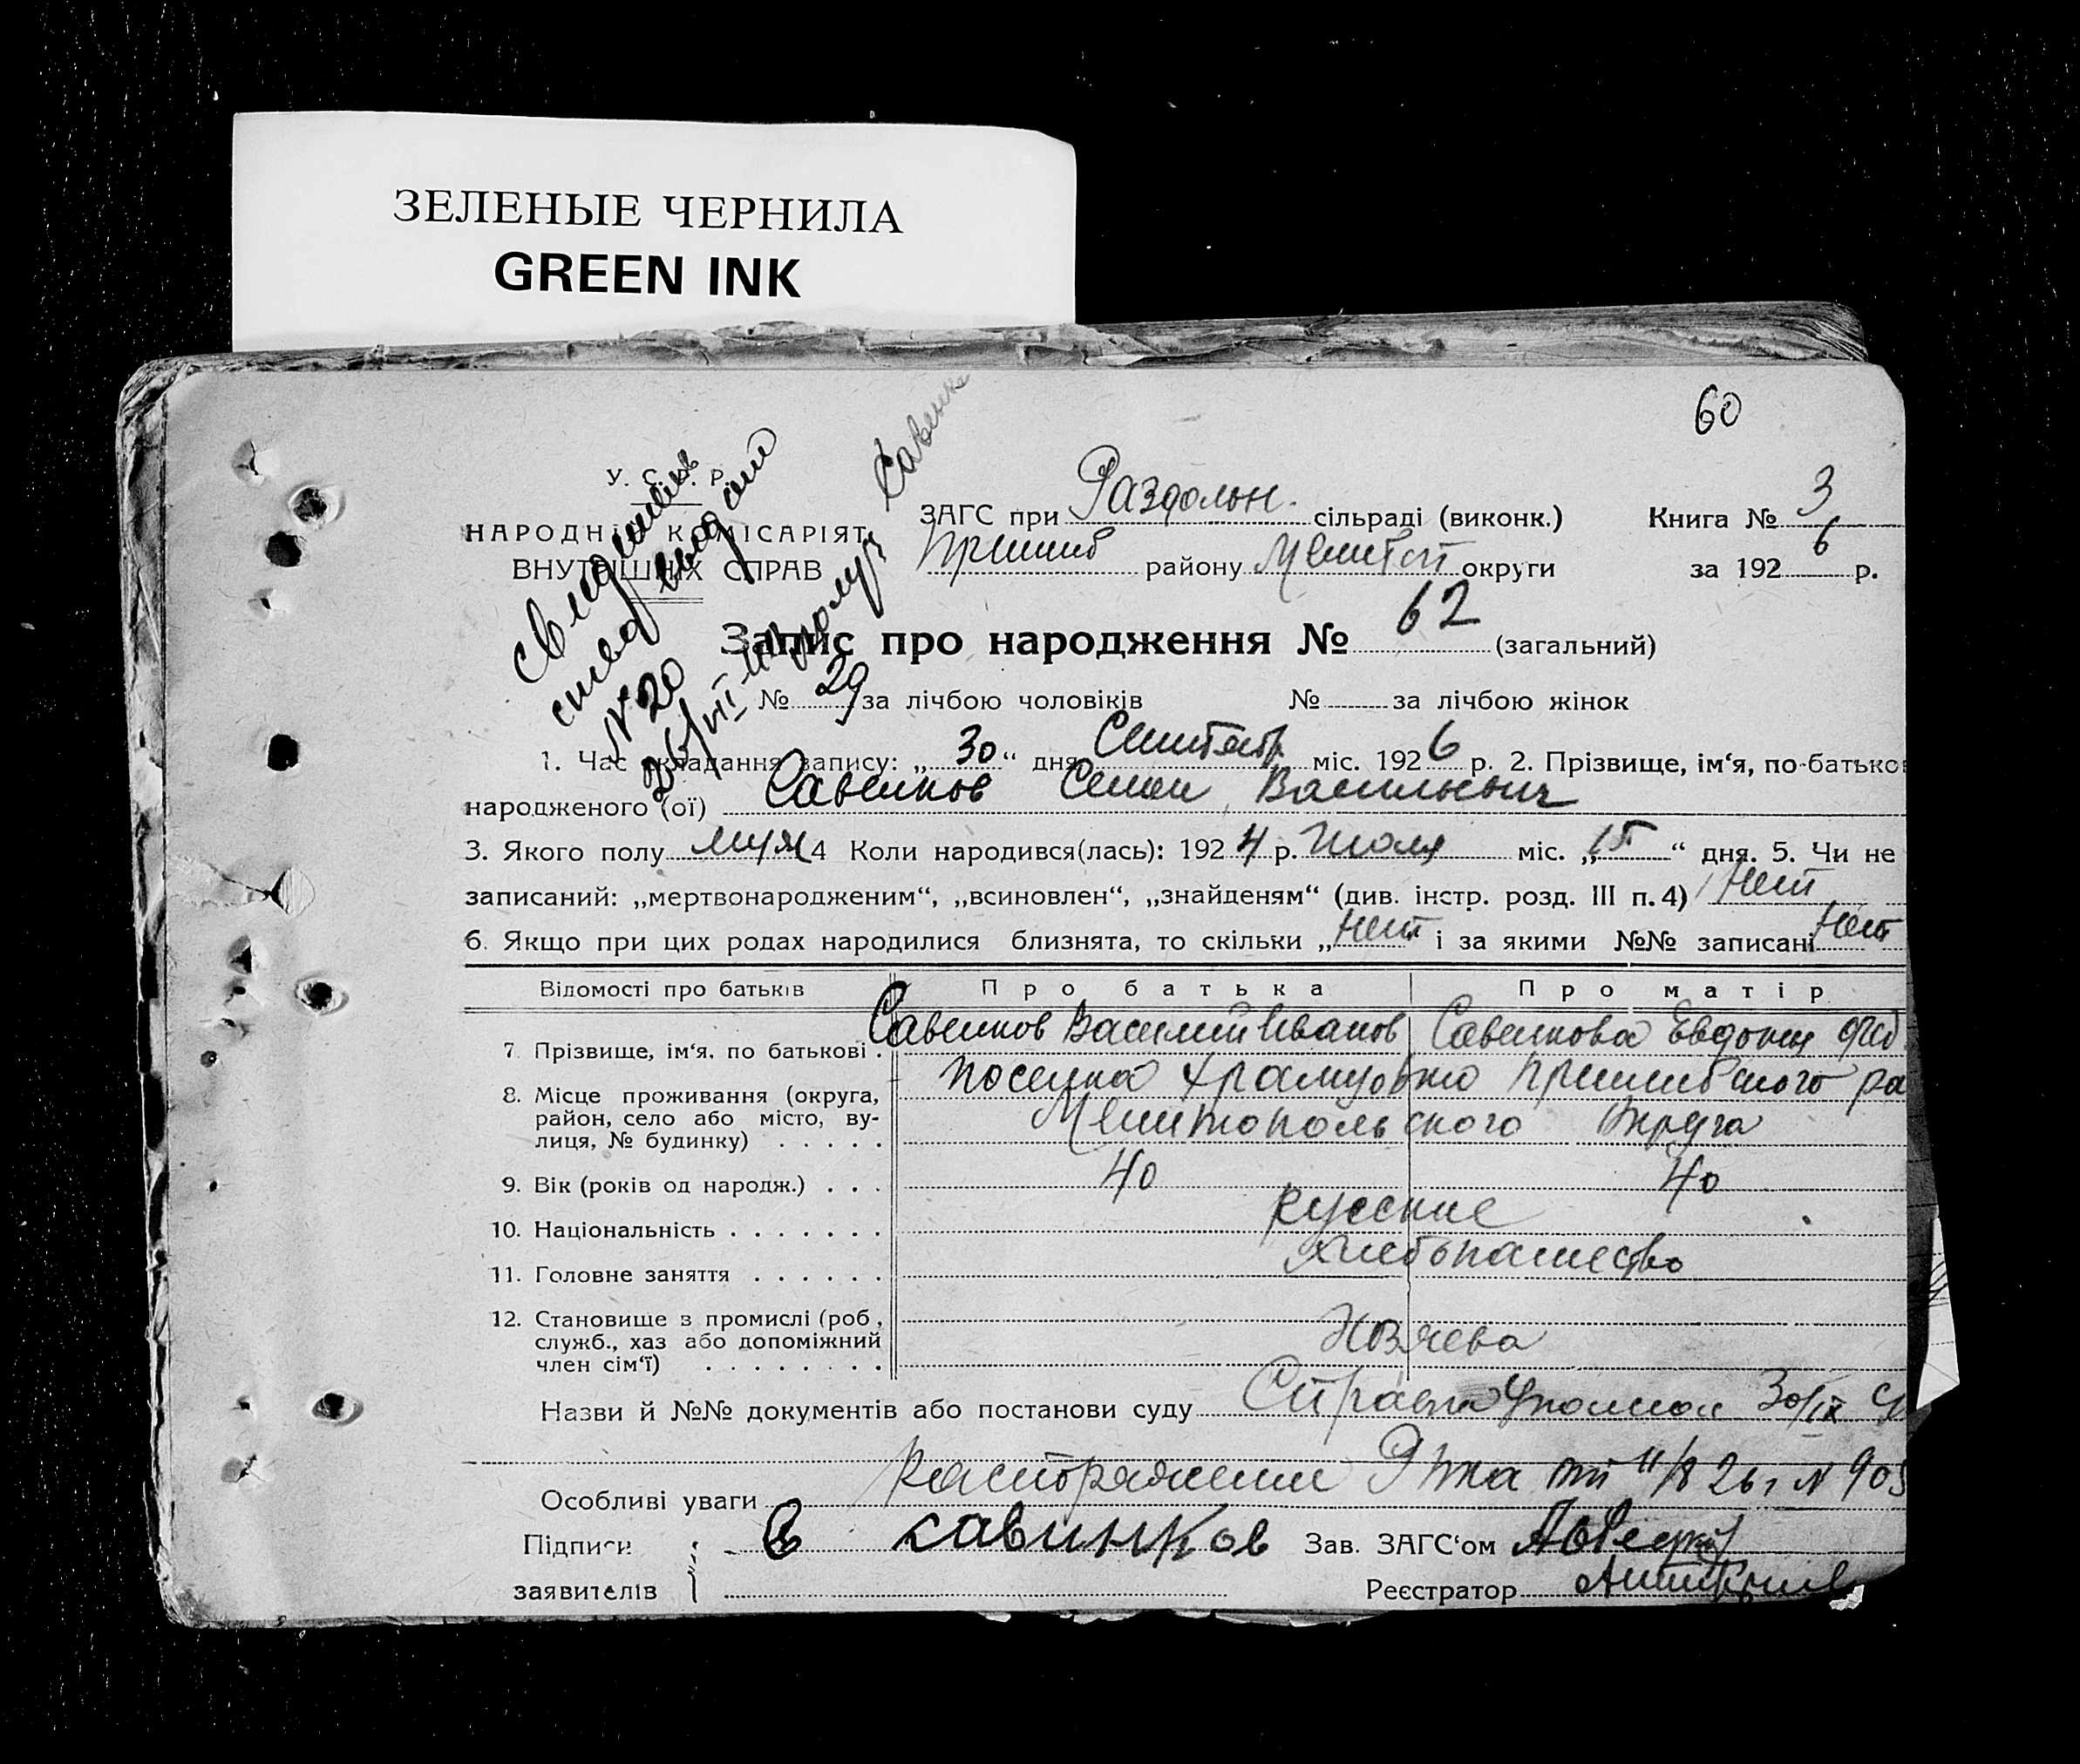 ЗЕЛЕНЫЕ ЧЕРНИЛА
GREEN INK
60
У. С. Р. Р.
НАРОДНІЙ КОМІСАРІЯТ
ВНУТРІШНІХ СПРАВ
ЗАГС при Раздольн. сільраді (виконк.)
Пришиб району Мелитоп округи
Книга № 3
за 1926 р.
Свидетель
ство выдано
№ 20
26/VII
получ
Запис про народження № 62 (загальний)
№ 29 за лічбою чоловіків № за лічбою жінок
1. Час складання запису: „30“ дня Сентябр міс. 1926 р. 2. Прізвище, ім‘я, по-батько
народженого (ої) Савенков Семен Васильевич
3. Якого полу муж 4 Коли народився(лась): 1924 р. Июля міс. „15“ дня. 5. Чи не
записаний: „мертвонародженим“, „всиновлен“, „знайденям“ (див. інстр. розд. III п. 4) Нет
6. Якщо при цих родах народилися близнята, то скільки „Нет і за якими №№ записані Нет
Відомості про батьків Про батька Про матір
7. Прізвище, ім‘я, по батькові . Савенков Василий Иванов Савенкова Евдокия Фед
8. Місце проживання (округа, район, село або місто, вулиця, № будинку) . . . . . поселка Пришибского ра
Мелитопольского Округа
9. Вік (років од народж.) . . . 40 40
10. Національність . . . . . . . Русские
11. Головне заняття . . . . . . Хлебопашество
12. Становище з промислі (роб.,
служб., хаз або допоміжний
член сім‘ї) . . . . . . . . Хозяева
Назви й №№ документів або постанови суду Справка 30/IX
Особливі уваги Распоряжении от 11/8 26 г N 905
Підписи
заявителів
Савинков Зав. ЗАГС‘ом
Реєстратор